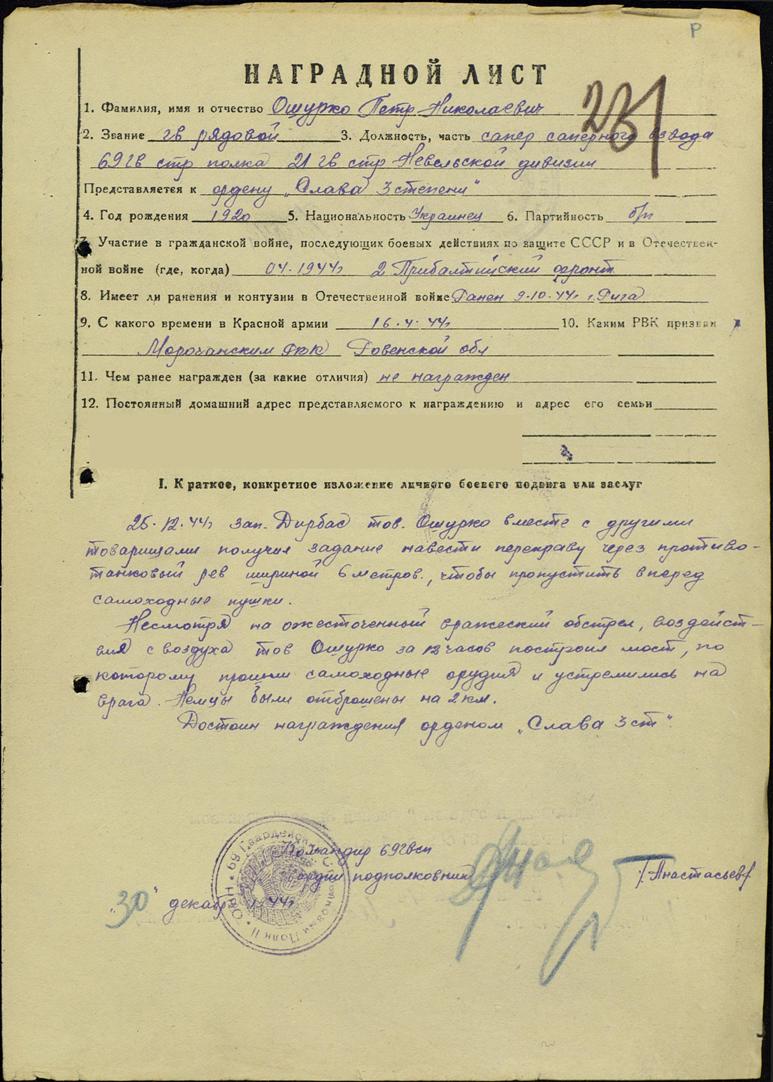 Р
НАГРАДНОЙ ЛИСТ
231
1. Фамилия, имя и отчество Ошурко Петр Николаевич
2. Звание гв рядовой 3. Должность, часть сапер саперного взвода
69 гв стр полка 21 гв стр Невельской дивизии
Представляется к ордену „Слава 3 степени"
4. Год рождения 1920 5. Национальность Украинец 6. Партийность б/п
7. Участие в гражданской войне, последующих боевых действиях по защите СССР и в Отечествен-
ной войне (где, когда) 04-1944г 2 Прибалтийский фронт
8. Имеет ли ранения и контузии в Отечественной войне Ранен 9-10-44г г. Рига
9. С какого времени в Красной армии 16-4-44г 10. Каким РВК призван
Морочанским РВК Ровенской обл
11. Чем ранее награжден (за какие отличия) не награжден
12. Постоянный домашний адрес представляемого к награждению и адрес его семьи
I. Краткое, конкретное изложение личного боевого подвига или заслуг
25-12-44г зап. Дирбас тов. Ошурко вместе с другими
товарищами получил задание навести переправу через противо-
танковый ров шириной 6 метров, чтобы пропустить вперед
самоходные пушки.
Несмотря на ожесточенный вражеский обстрел, воздейст-
вия с воздуха тов Ошурко за 12 часов построил мост, по
которому прошли самоходные орудия и устремились на
врага. Немцы были отброшены на 2 км.
Достоин награждения орденом „Слава 3 ст"
Командир 69 гвсп
гвардии подполковник /Анастасьев/
„30" декаб 44г